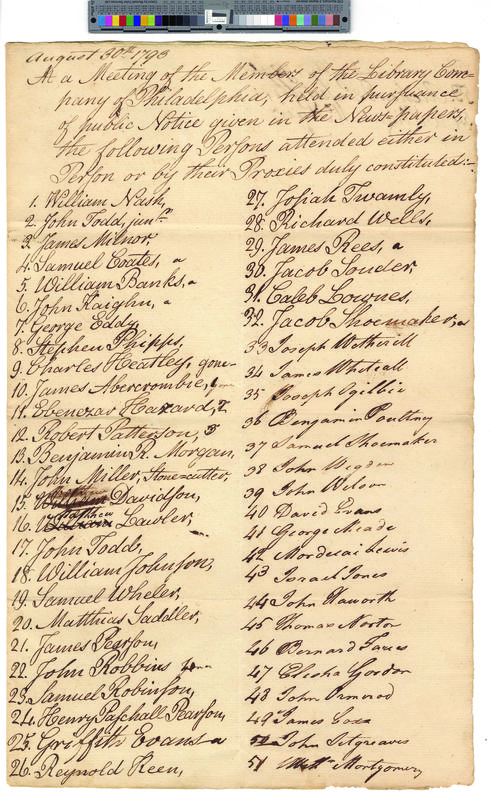 August 30th. 1793
At a Meeting of the Members of the Library Com=
pany of Philadelphia, held in pursuance
of public Notice given in the News=papers,
the following Persons attended either in
Person or by their Proxies duly constituted:-
1. William Nash,
2. John Todd, junr.
3. James Milnor,
4. Samuel Coates, a
5. William Banks, a
6. John Kaighn, a
7. George Eddy,
8. Stephen Phipps,
9. Charles Heatley,
10. James Abercrombie,
11. Ebenezar Hazard,
12. Robert Patterson,
13. Benjamin R. Morgan,
14. John Miller, Stone=cutter,
15. Davidson,
16. Matthew Lawler,
17. John Todd,
18. William Johnson,
19. Samuel Wheler,
20. Matthias Saddler,
21. James Pearson,
22. John Robbins
23. Samuel Robinson,
24. Henry Paschall Pearson,
25. Griffith Evans a
26. Reynold Keen,
27. Josiah Twamly,
28. Richard Wells,
29. James Rees, a
30. Jacob Souder,
31. Caleb Lownes,
32. Jacob Shoemaker, a
33 Joseph Wetherill
34 James Whiteall
35 Joseph Ogillbie
36 Benjamin Poultney
37 Samuel Shoemaker
38 John Wigden
39 John Wilson
40 David Evans
41 George Meade
42 Mordecai Lewis
43 Israel Jones
44 John Haworth
45 Thomas Norton
46 Barnard
47 Elisha Gordon
48 John Ormrod
49 James Coxe
50 John Sitgreaves
51 Montgomery